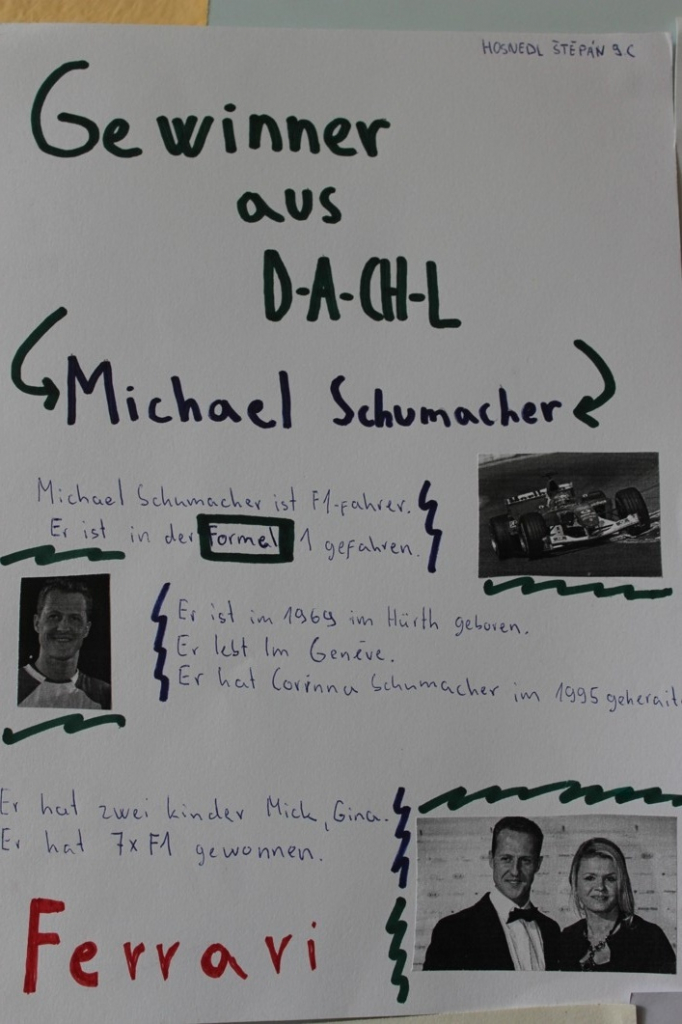 HOSNEDL ŠTĚPÁN 9.C
Gewinner
aus
D-A-CH-L
Michael Schumacher
Michael Schumacher ist F1-fahrer.
Er ist in der Formel 1 gefahren.
Er ist im 1969 im Hürth geboren.
Er lebt Im Genéve.
Er hat Corinna Schumacher im 1995 geherait
Er hat zwei kinder Mick, Gina.
Er hat 7x F1 gewonnen.
Ferrari